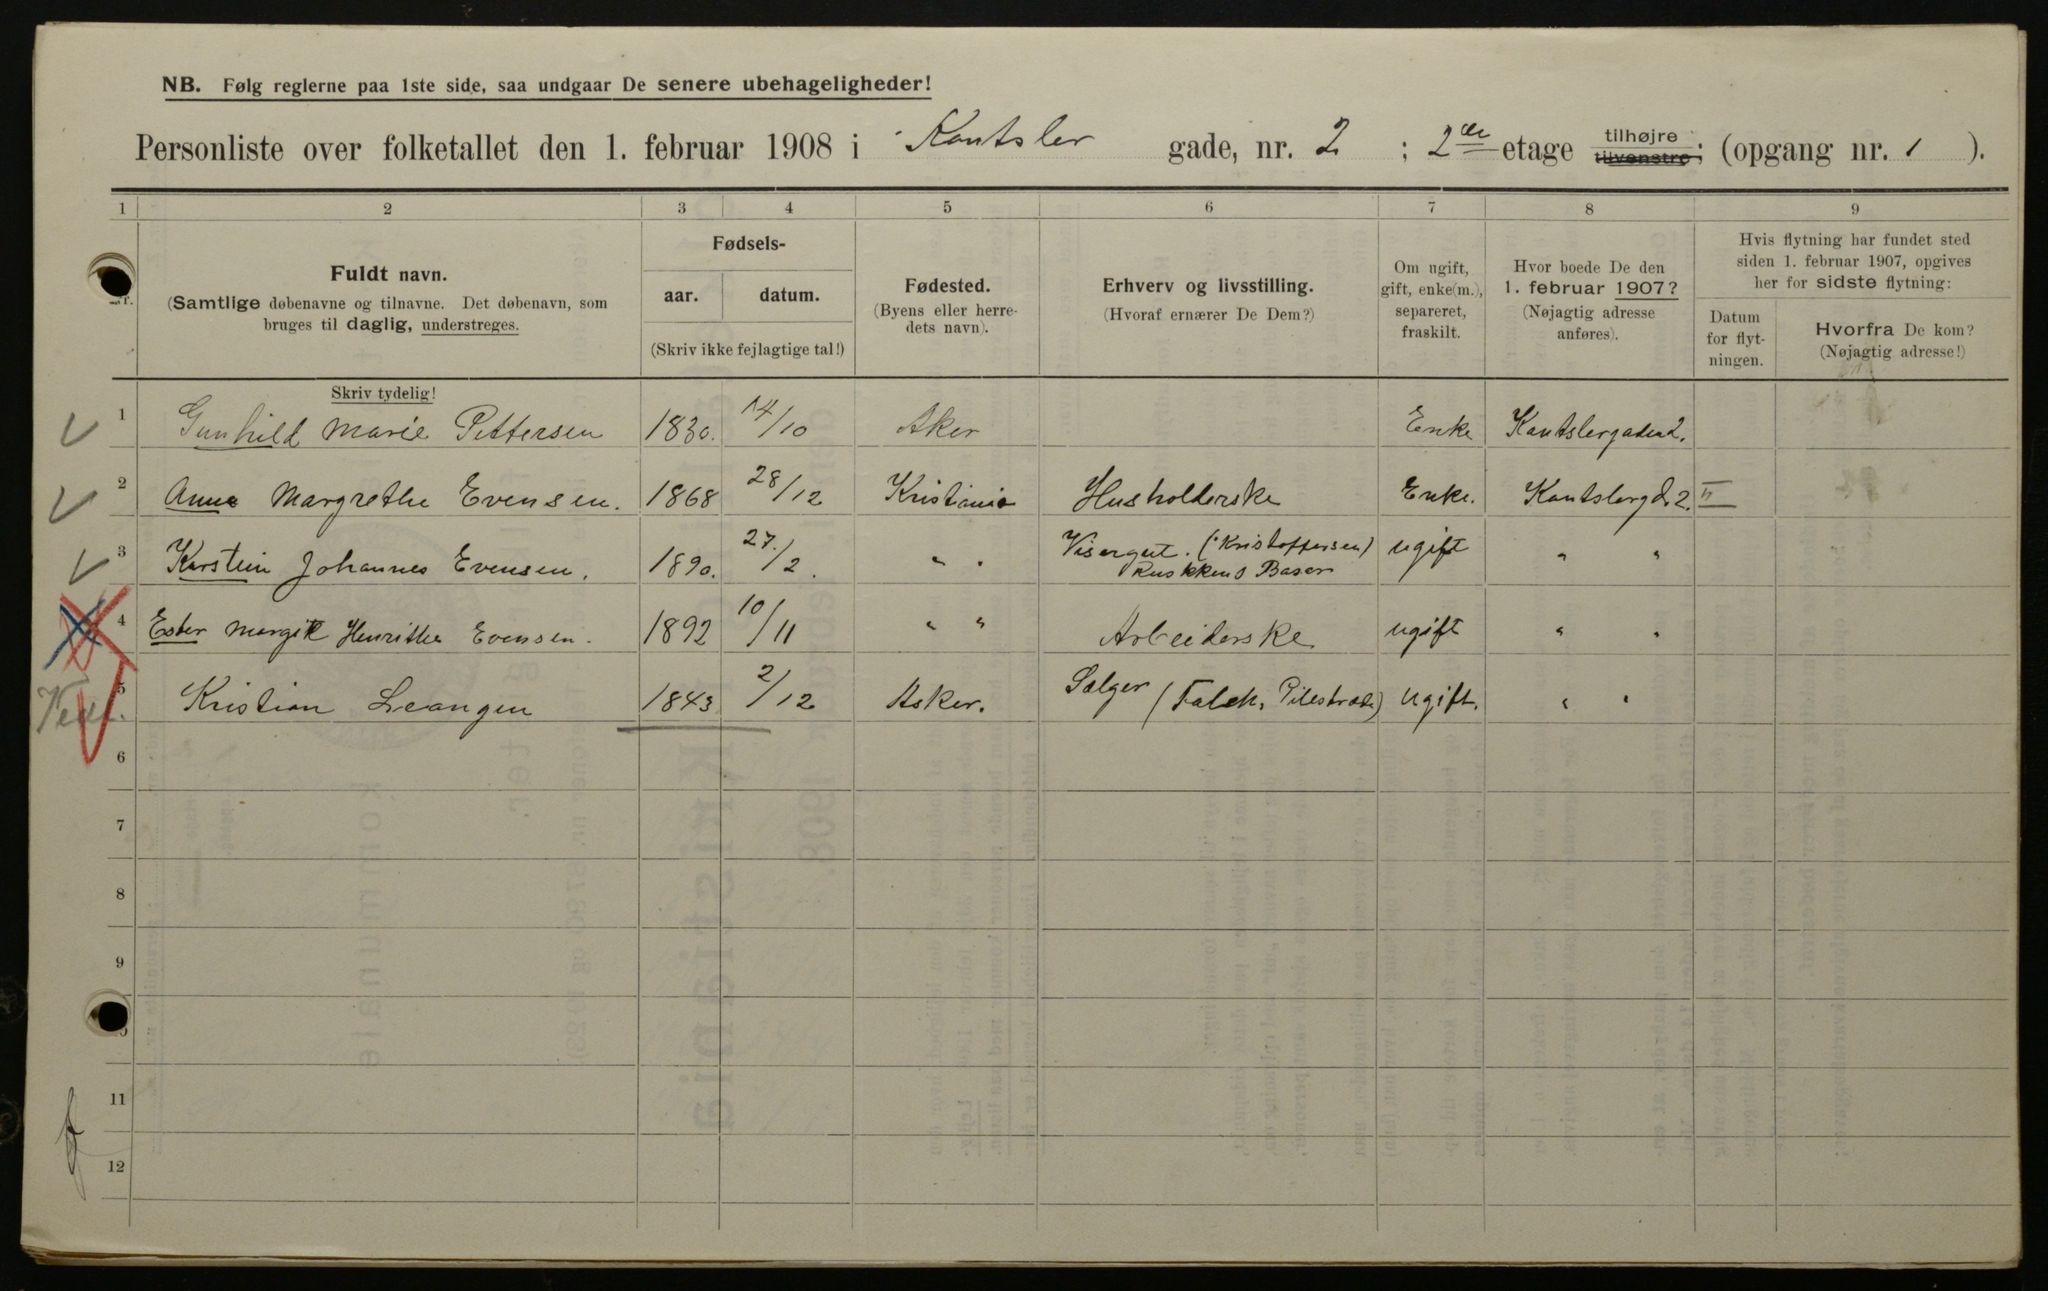 NB. Følg reglerne paa 1ste side, saa undgaar De senere ubehageligheder!
Personliste over folketallet den 1. februar 1908 i Kantsler gade, nr. 2 ; 2den etage tilhøjre tilvenstre; (opgang nr. 1 ).
1 2 3 4 5 6 7 8 9
Nr.
Fuldt navn.
(Samtlige døbenavne og tilnavne. Det døbenavn, som
bruges til daglig, understreges.
Fødsels-
aar. datum.
(Skriv ikke fejlagtige tal!)
Fødested.
(Byens eller herre-
dets navn).
Erhverv og livsstilling.
(Hvoraf ernærer De Dem?)
Om ugift,
gift, enke(m.),
separeret,
fraskilt.
Hvor boede De den
1. februar 1907?
(Nøjagtig adresse
anføres).
Hvis flytning har fundet sted
siden 1. februar 1907, opgives
her for sidste flytning:
Datum
for flyt-
ningen.
Hvorfra De kom?
(Nøjagtig adresse!)
Skriv tydelig!
1 Gunhild Marie Pettersen 1830. 14/10 Aker Enke Kantslergaden 2.
2 Anna Margrethe Evensen. 1868 28/12 Kristiania Husholderske Enke. Kantslergd. 2. II
3 Karstein Johannes Evensen. 1890. 27/2. " " Visergut. (Kristoffersen) ugift " "
Russens Basar
4 Ester Margit Henrithe Evensen. 1892 10/11 " " Arbeiderske ugift " "
5 Kristian Leangen 1843 2/12 Asker. Sælger (Falch, Pilestræde) ugift. " "
6
7
8
9
11
12